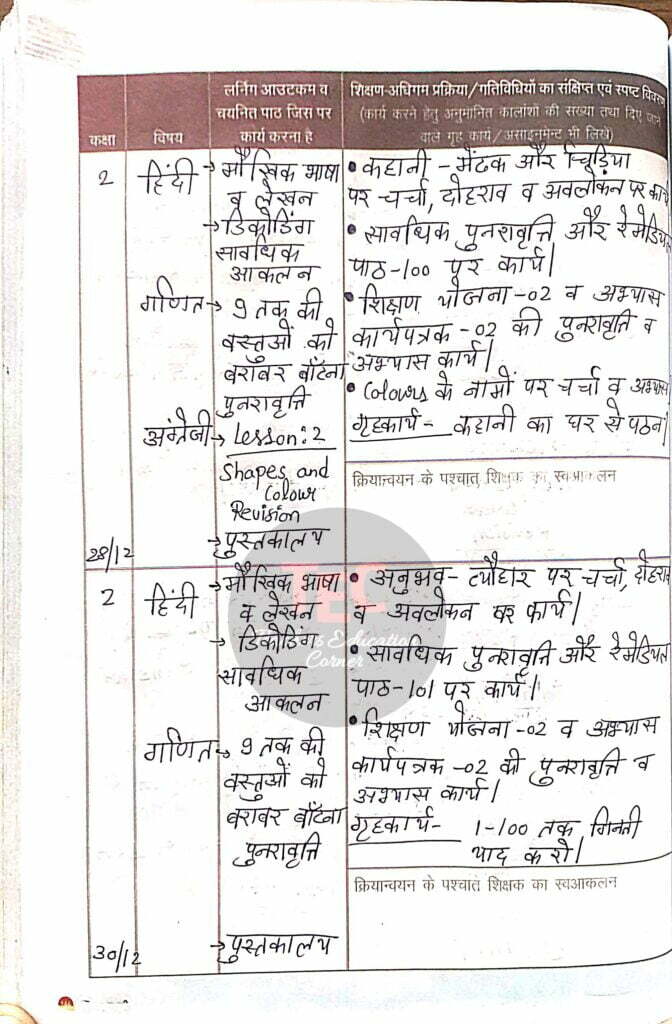 कक्षा
विषय
लर्निंग आउटकम व
चयनित पाठ जिस पर
कार्य करना है
शिक्षण-अधिगम प्रक्रिया/गतिविधियों का संक्षिप्त एवं स्पष्ट
(कार्य करने हेतु अनुमानित कालांशों की संख्या तथा दिए
वाले गृह कार्य/असाइनमेन्ट भी लिखें)
2
हिंदी
→ मौखिक भाषा
व लेखन
→ डिकोडिंग
सावधिक
आकलन
• कहानी - मेंढक और चिड़िया
पर चर्चा, दोहराव व अवलोकन पर कार्य
• सावधिक पुनरावृत्ति और रेमेडियल
पाठ-100 पर कार्य।
गणित
→ 9 तक की
वस्तुओं को
बराबर बाँटना
पुनरावृत्ति
• शिक्षण योजना -02 व अभ्यास
कार्यपत्रक -02 की पुनरावृत्ति व
अभ्यास कार्य।
अंग्रेजी
→ Lesson:2
Shapes and
Colour
Revision
→ पुस्तकालय
• Colours के नामों पर चर्चा व अभ्यास
गृहकार्य - कहानी का घर से पठन।
क्रियान्वयन के पश्चात् शिक्षक का स्वआकलन
28/12
2
हिंदी
→ मौखिक भाषा
व लेखन
→ डिकोडिंग
सावधिक
आकलन
• अनुभव - त्यौहार पर चर्चा, दोहराव
व अवलोकन पर कार्य।
• सावधिक पुनरावृत्ति और रेमेडियल
पाठ-101 पर कार्य।
गणित
→ 9 तक की
वस्तुओं को
बराबर बाँटना
पुनरावृत्ति
• शिक्षण योजना -02 व अभ्यास
कार्यपत्रक -02 की पुनरावृत्ति व
अभ्यास कार्य।
गृहकार्य - 1-100 तक गिनती
याद करो।
क्रियान्वयन के पश्चात् शिक्षक का स्वआकलन
→ पुस्तकालय
30/12
TEC
Education
Corner